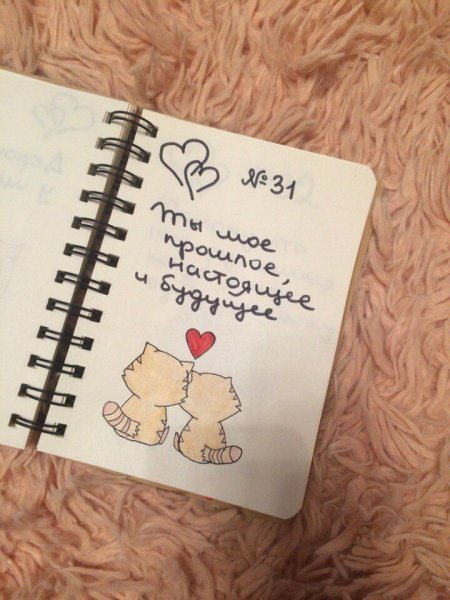 №31
Ты мое
прошлое,
настоящее
и будущее